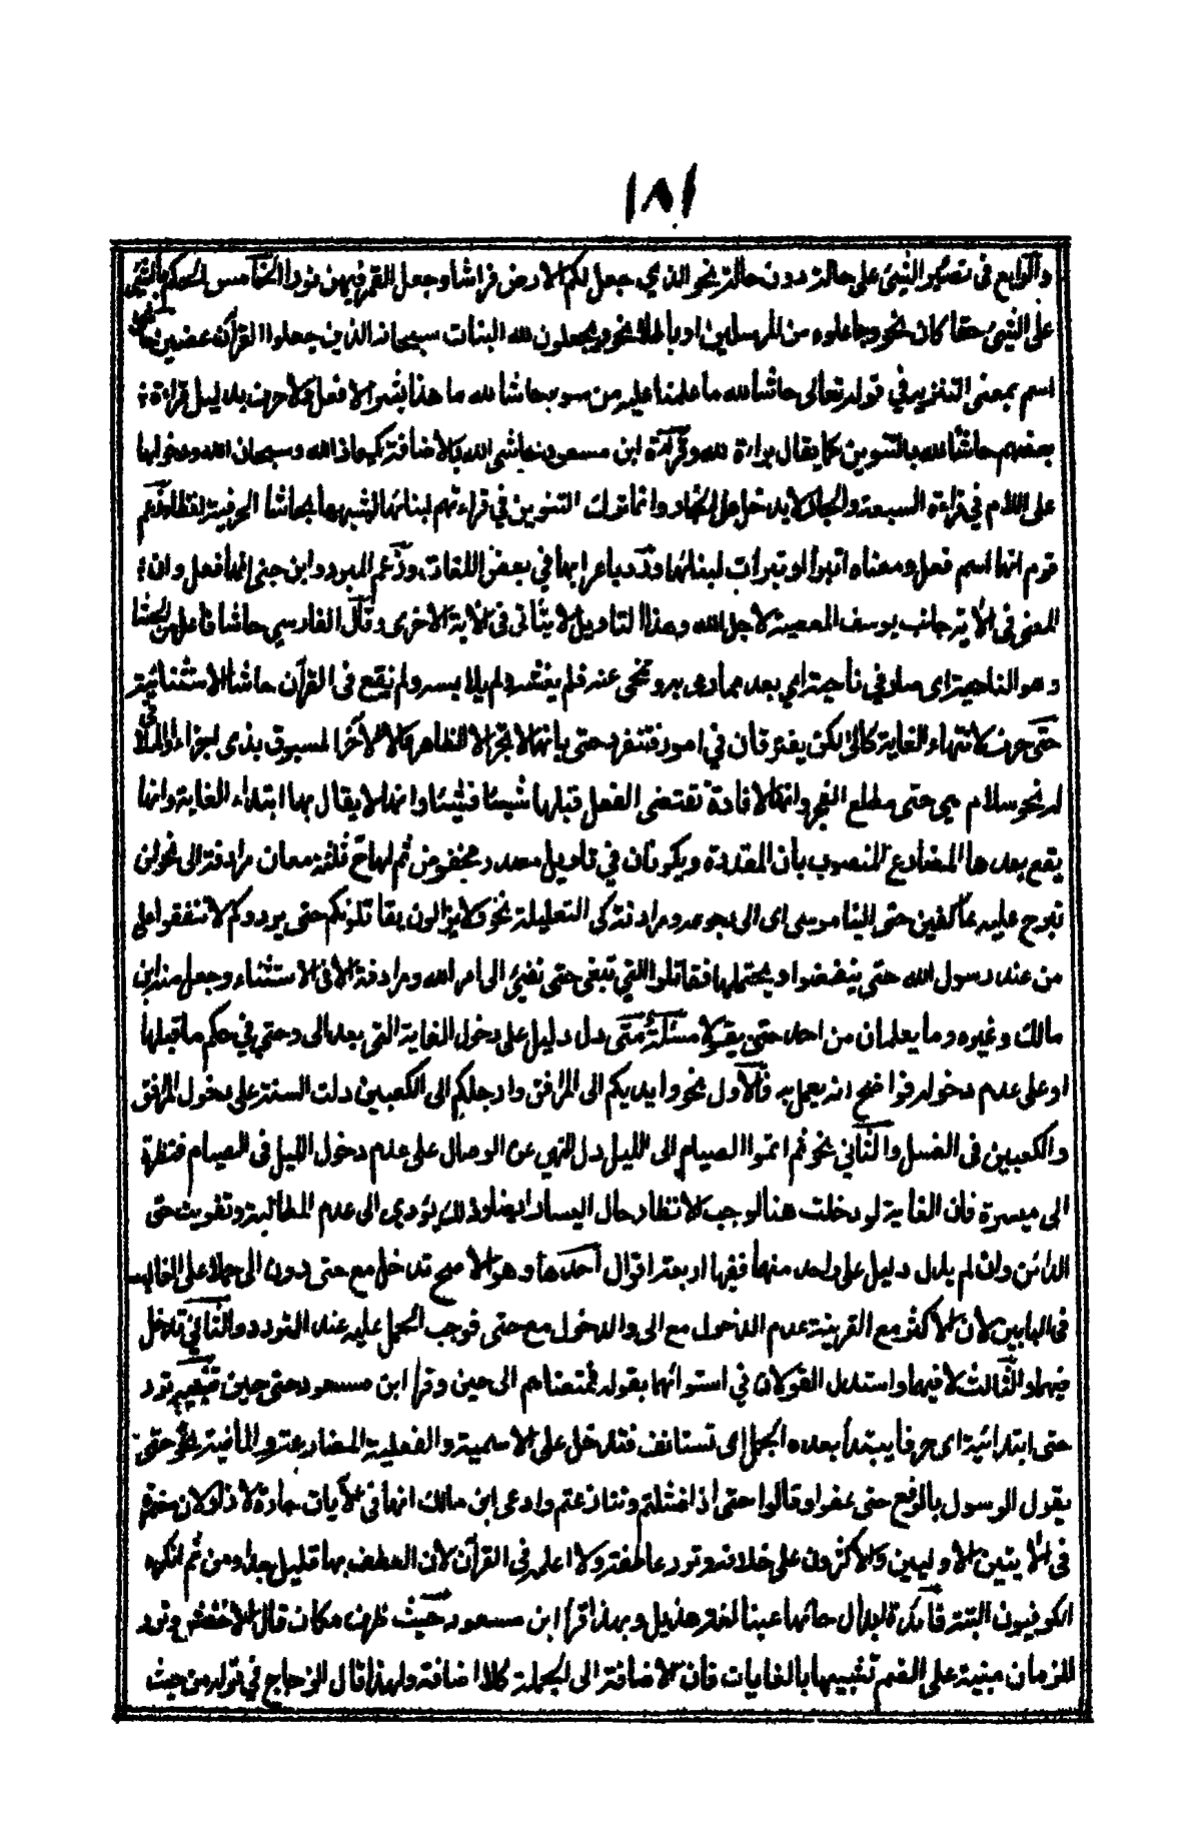 ١٨١
والرابع فى تصيير الشئ على حالة دون حالة نحو الذي جعل لكم الارض فراشا وجعل القمر فيهن نورا الخامس الحكم بالشئ
على الشئ حقا كان نحو وجاعلوه من المرسلين او باطلا نحو ويجعلون لله البنات سبحانه الذين جعلوا القرآن عضين حاشى
اسم بمعنى التنزيه في قوله تعالى حاشا لله ما علمنا عليه من سوء حاشا لله ما هذا بشرا لا فعل ولا حرف بدليل قراءة
بعضهم حاشا لله بالتنوين كما يقال براءة لله وقراءة ابن مسعود حاشى الله بالاضافة كمعاذ الله وسبحان الله ودخولها
على اللام في قراءة السبعة والجار لا يدخل على الجار وانما ترك التنوين في قراءتهم لبنائها لشبهها بحاشا الحرفية لفظا وزعم
قوم انها اسم فعل ومعناه اتبرأ او تبرأت لبنائها ورد باعرابها في بعض اللغات وزعم المبرد وابن جنى انها فعل وان
المعنى فى الآية جانب يوسف المعصية لاجل الله وهذا التاويل لا يتأتى فى الآية الاخرى وقال الفارسي حاشا فاعل من الحشا
وهو الناحية اى صار في ناحية اي بعد مما رمى به وتنحى عنه فلم يغشه ولم يلابسه ولم يقع فى القرآن حاشا الا استثنائية
حتى حرف لانتهاء الغاية كالى لكن يفترقان في امور فتنفرد حتى بانها لا تجر الا الظاهر والا الآخر المسبوق بذى اجزاء والملاقى
له نحو سلام هي حتى مطلع الفجر وانها لافادة تقتضى الفعل قبلها شيئا فشيئا وانها لا يقال بها ابتداء الغاية وانها
يقع بعدها المضارع المنصوب بان المقدرة ويكونان في تاويل مصدر مخفوض ثم لها ح ثلثة معان مرادفة الى نحو لن
نبرح عليه عاكفين حتى الينا موسى اى الى رجوعه ومرادفة كى التعليلة نحو ولا يزالون يقاتلونكم حتى يردوكم لا تنفقوا على
من عند رسول الله حتى ينفضوا ويحتملها فقاتلوا التي تبغى حتى تفئ الى امر الله ومرادفة الا فى الاستثناء وجعل منه ابن
مالك وغيره وما يعلمان من احد حتى يقولا مسئلة متى دل دليل على دخول الغاية التى بعد الى وحتي في حكم ما قبلها
او على عدم دخوله فواضح انه يعمل به فالاول نحو وايديكم الى المرافق وارجلكم الى الكعبين دلت السنة على دخول المرفق
والكعبين فى الغسل والثاني نحو ثم اتموا الصيام الى الليل دل النهي عن الوصال على عدم دخول الليل فى الصيام فنظرة
الى ميسرة فان الغاية لو دخلت هنا لوجب الانتظار حال اليسار ايضا وذلك يؤدي الى عدم المطالبة وتفويت حق
الدائن وان لم يدل دليل على واحد منهما ففيها اربعة اقوال احدها وهو الاصح تدخل مع حتى دون الى حملا على الغالب
فى البابين لان الاكثر مع القرينة عدم الدخول مع الى والدخول مع حتى فوجب الحمل عليه عند التردد والثاني تدخل
فيهما والثالث لا فيهما واستدل القولان في استوائهما بقوله فمتعناهم الى حين وقرأ ابن مسعود حتى حين تنبيه ترد
حتى ابتدائية اى حرفا يبتدأ بعده الجمل اى تستانف فتدخل على الاسمية والفعلية المضارعة والماضية نحو حتى
يقول الرسول بالرفع حتى عفوا وقالوا حتى اذا فشلتم وتنازعتم وادعى ابن مالك انها فى الآيات جارة لاذا ولان مضمرة
فى الآيتين الاوليين والاكثرون على خلافه وترد عاطفة ولا اعلمه فى القرآن لان العطف بها قليل جدا ومن ثم انكره
الكوفيون البتة فائدة ابدال حائها عينا لغة هذيل وبهذا قرأ ابن مسعود حيث ظرف مكان قال الاخفش وترد
للزمان مبنية على الضم تشبيها بالغايات فان الاضافة الى الجملة كلا اضافة ولهذا قال الزجاج في قوله من حيث